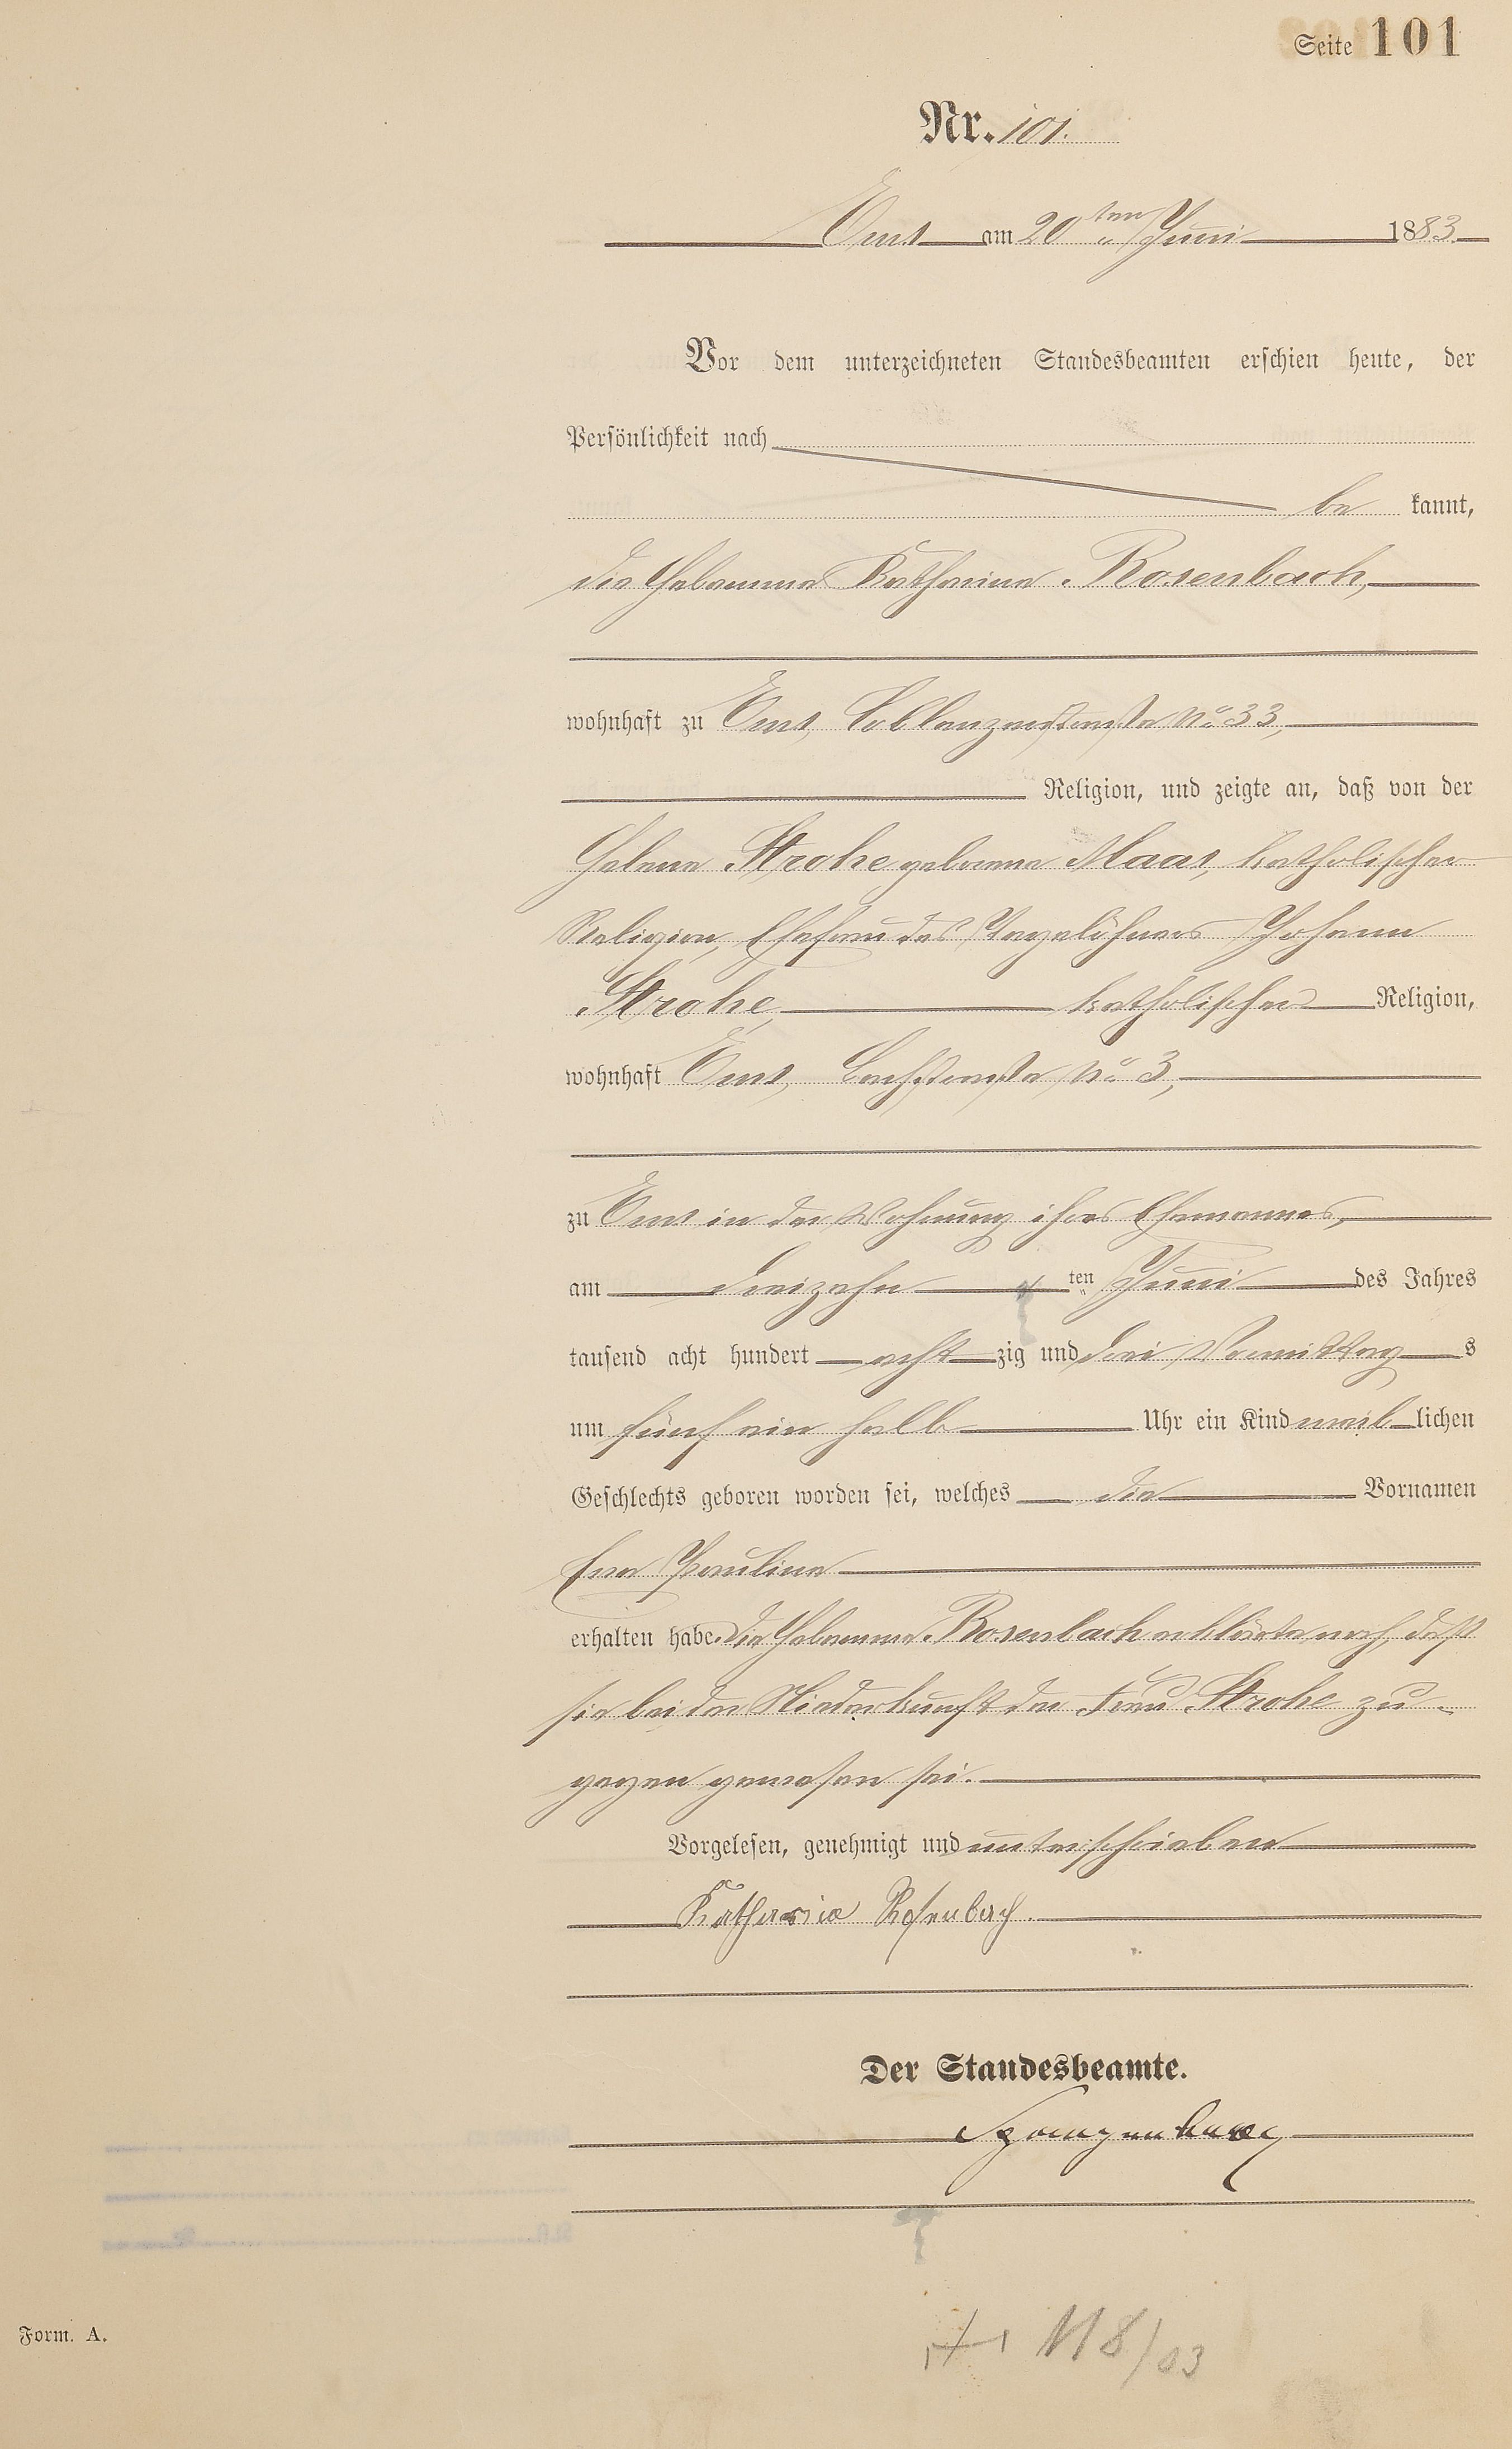 Seite 101
Nr. 101.
Ems am 20ten Juni 1883.
Vor dem unterzeichneten Standesbeamten erschien heute, der
Persönlichkeit nach
be kannt,
die Hebamme Katharina Rosenbach,
wohnhaft zu Ems, Coblenzerstraße No 33,
Religion, und zeigte an, daß von der
Helene Strohe geborene Maas, katholischer
Religion, Ehefrau des Tagelöhners Johann
Strohe, katholischer Religion,
wohnhaft Ems, Bachstraße No 3,
zu Ems in der Wohnung ihres Ehemannes,
am dreizehn ten Juni des Jahres
tausend acht hundert acht zig und drei Vormittag s
um fünf ein halb Uhr ein Kind weib lichen
Geschlechts geboren worden sei, welches die Vornamen
Eva Paulina
erhalten habe. Die Hebamme Rosenbach erklärte noch, daß
sie bei der Niederkunft der Frau Strohe zu-
gegen gewesen sei.
Vorgelesen, genehmigt und unterschrieben
Katharina Rosenbach.
Der Standesbeamte.
Spangenberg
118/03
Form. A.